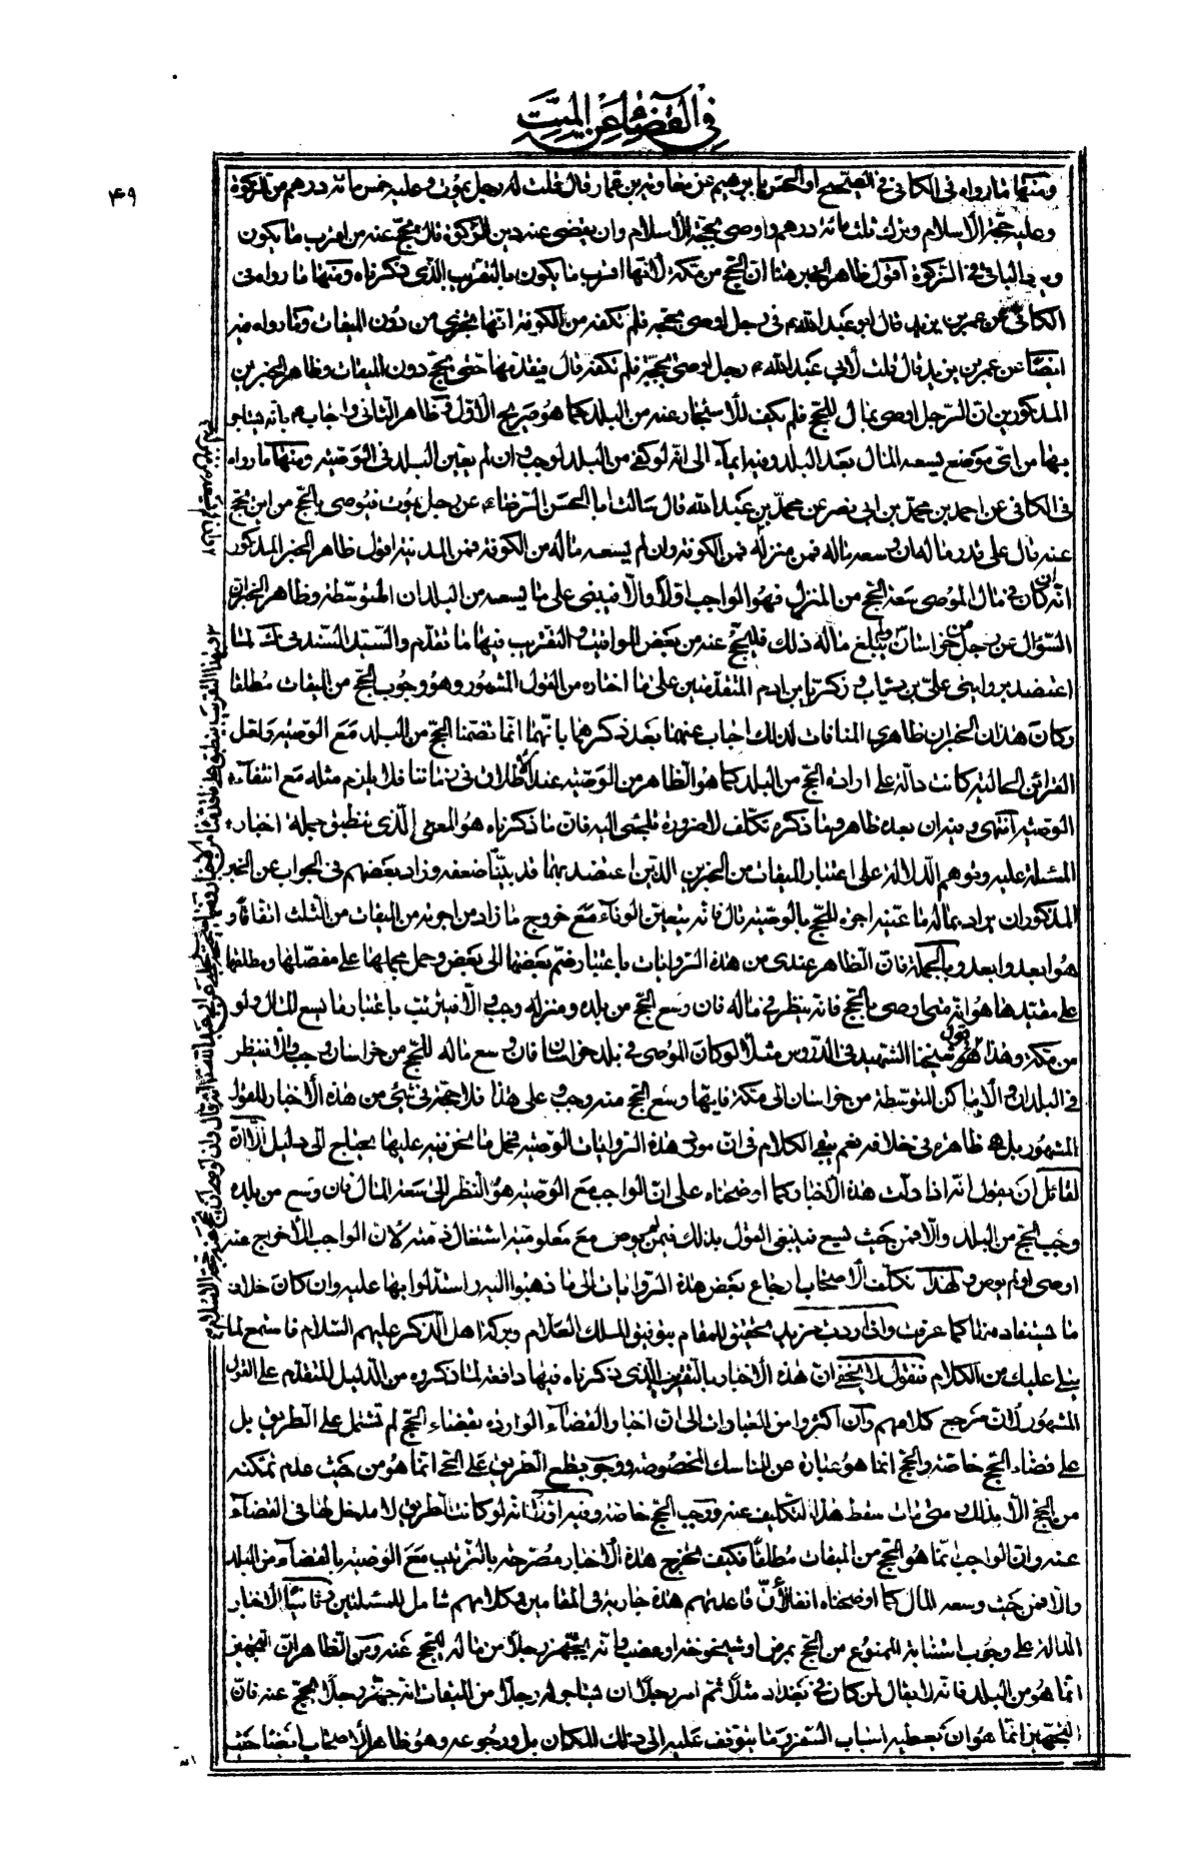 في القضاء عن الميت
۴۹
ومنها ما رواه في الكافي في الصحيح او الحسن بابرهيم عن معاوية بن عمار قال قلت له رجل يموت وعليه خمس مائة درهم من الزكوة
وعليه حجة الاسلام وترك ثلث مائة درهم واوصى بحجة الاسلام وان يقضى عنه دين الزكوة قال يحج عنه من اقرب ما يكون
ويرد الباقي في الزكوة اقول ظاهر الخبر هنا ان الحج من مكة لانها اقرب ما يكون بالتقريب الذي ذكرناه ومنها ما رواه في
الكافي عن عمر بن يزيد قال قال ابو عبد الله ع في رجل اوصى بحجة فلم تكفه من الكوفة انها تجزي من دون الميقات وما رواه فيه
ايضا عن عمر بن يزيد قال قلت لابي عبد الله ع رجل اوصى بحجة فلم تكفه قال فيقدمها حتى يحج دون الميقات وظاهر الخبرين
المذكورين ان الرجل اوصى بمال للحج فلم يكف للاستيجار عنه من البلد كما هو صريح الاول وظاهر الثاني واجاب ع بانه يستاجر
بها من اي موضع يسعه المال بعد البلد وفيه ايماء الى انه لو كفى من البلد لوجب وان لم يعين البلد في الوصية ومنها ما رواه
في الكافي عن احمد بن محمد بن ابي نصر عن محمد بن عبد الله قال سالت ابا الحسن الرضا ع عن رجل يموت فيوصي بالحج من اين يحج
عنه قال على قدر ماله ان وسعه ماله فمن منزله فمن الكوفة وان لم يسعه ماله من الكوفة فمن المدينة اقول ظاهر الخبر المذكور
انه ان كان في مال الموصي سعة الحج من المنزل فهو الواجب اولا والا فينبغي على ما يسعه من البلدان المتوسطة وظاهر الخبر ان
السؤال عن رجل من خراسان ولم يبلغ ماله ذلك فليحج عنه من بعض المواقيت والتقريب فيها ما تقدم والسيد السند في ك لما
اعتضد بروايتي علي بن رئاب و زكريا بن ادم المتقدمتين على ما اختاره من القول المشهور وهو وجوب الحج من الميقات مطلقا
وكان هذان الخبران ظاهري المنافات لذلك اجاب عنهما بعد ذكرهما بانهما انما تضمنا الحج من البلد مع الوصية ولعل
القرائن الحالية كانت دالة على ارادة الحج من البلد كما هو الظاهر من الوصية عند الاطلاق في زماننا فلا يلزم مثله مع انتفاء
الوصية انتهى وفيه ان بعده ظاهر وما ذكره تكلف لا ضرورة تلجئ اليه فان ما ذكرناه هو المعنى الذي تنطبق جملة اخبار
المسئلة عليه وتوهم الدلالة على اعتبار الميقات من الخبرين الذين اعتضد بهما قد بينا ضعفه وزاد بعضهم في الجواب عن الخبر
المذكور ان يراد بماله ما عينه اجرة للحج بالوصية قال فانه يتعين الوفاء مع خروج ما زاد من اجرته من الميقات من الثلث اتفاقا و
هو ابعد وابعد وبالجملة فان الظاهر عندي من هذه الروايات باعتبار ضم بعضها الى بعض وحمل مجملها على مفصلها ومطلقها
على مقيدها هو انه متى اوصى بالحج فانه ينظر في ماله فان وسع الحج من بلده ومنزله وجب والا فيترتب باعتبار ما يسع المال ولو
من مكة وهذا هو قول شيخنا الشهيد في الدروس مثلا لو كان الموصي في بلد خراسان فان وسع ماله للحج من خراسان وجب والا ننظر
في البلدان والاماكن المتوسطة من خراسان الى مكة فايها وسع الحج منه وجب وعلى هذا فلا حجة في شئ من هذه الاخبار للقول
المشهور بل هي ظاهرة في خلافه نعم يبقى الكلام في ان مورد هذه الروايات الوصية فحمل ما نحن فيه عليها يحتاج الى دليل الا ان
لقائل ان يقول انه اذا دلت هذه الاخبار كما اوضحناه على ان الواجب مع الوصية هو النظر الى سعة المال فان وسع من بلده
وجب الحج من البلد والا فمن حيث يسع فينبغي القول بذلك فيمن لم يوص مع معلومية اشتغال ذمته لان الواجب الاخراج عنه
اوصى او لم يوص ولهذا تكلف الاصحاب ارجاع بعض هذه الروايات الى ما ذهبوا اليه واستدلوا بها عليه وان كان خلاف
ما يستفاد منها كما عرفت واذا اردت مزيد تحقيق للمقام بتوفيق الملك العلام وبركة اهل الذكر عليهم السلام فاستمع لما
يتلى عليك من الكلام فنقول لا يخفى ان هذه الاخبار بالتقريب الذي ذكرناه فيها دافعة لما ذكروه من الدليل المتقدم على القول
المشهور لان مرجع كلامهم وان اكثروا من العبارات الى ان اخبار القضاء الواردة بقضاء الحج لم تشتمل على الطريق بل
على قضاء الحج خاصة والحج انما هو عبارة عن المناسك المخصوصة ووجوب قطع الطريق على الحي انما هو من حيث عدم تمكنه
من الحج الا بذلك فمتى مات سقط هذا التكليف عنه ووجب الحج خاصة وفيه اولا انه لو كانت الطريق لا مدخل لها في القضاء
عنه وان الواجب انما هو الحج من الميقات مطلقا فكيف تخرج هذه الاخبار مصرحة بالترتيب مع الوصية بالقضاء من البلد
والا فمن حيث وسعه المال كما اوضحناه انفا لان قاعدتهم هذه جارية في المقامين وكلامهم شامل للمسئلتين وثانيا الاخبار
الدالة على وجوب استنابة الممنوع من الحج بمرض او شيخوخة او عضب وانه يجهز رجلا من ماله للحج عنه ومن الظاهر ان التجهيز
انما هو من البلد فانه لا يقال لمن كان في بغداد مثلا ثم امر رجلا ان يستاجر له رجلا من الميقات انه جهز رجلا للحج عنه فان
التجهيز انما هو ان تعطيه اسباب السفر وما يتوقف عليه الى ذلك المكان بل ورجوعه وهو ظاهر الاصحاب ايضا حيث